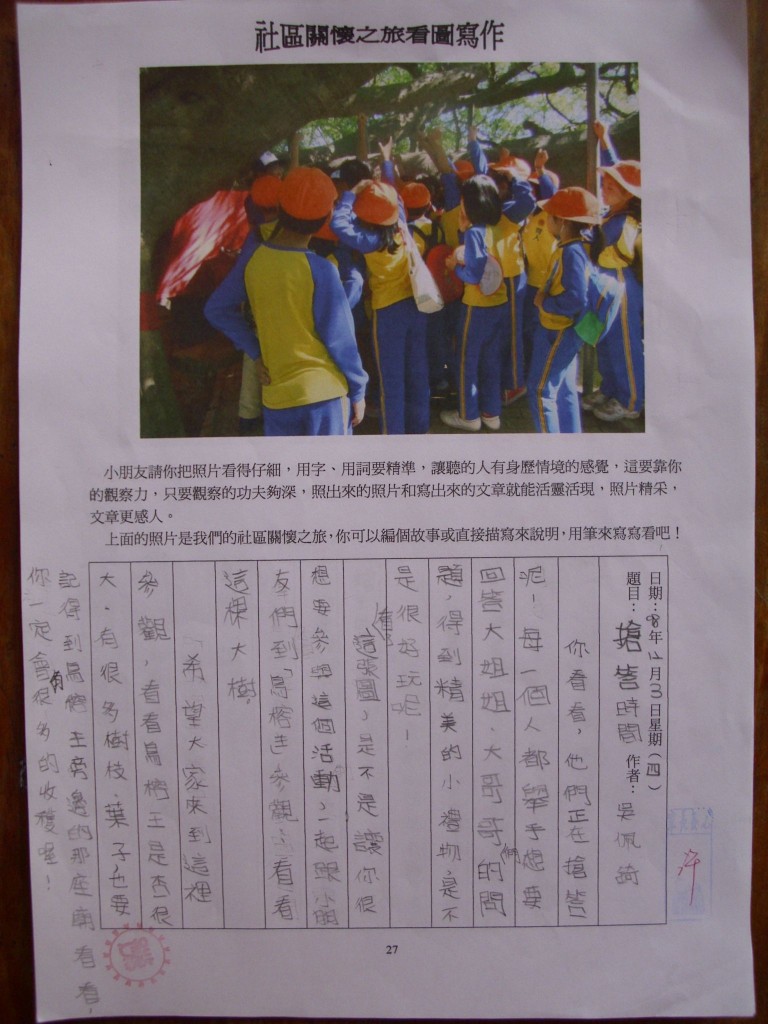 社區關懷之旅看圖寫作
小朋友請你把照片看得仔細，用字、用詞要精準，讓聽的人有身歷情境的感覺，這要靠你
的觀察力，只要觀察的功夫夠深，照出來的照片和寫出來的文章就能活靈活現，照片精采，
文章更感人。
上面的照片是我們的社區關懷之旅，你可以編個故事或直接描寫來說明，用筆來寫寫看吧！
日期：98年12月3日星期（四）
題目：搶答時間 作者：吳佩綺
你看看，他們正在搶答
呢！每一個人都舉手想要
回答大姐姐、大哥哥們的問
題，得到精美的小禮物，是不
是很好玩呢！
看了這張圖，是不是讓你很
想要參與這個活動，一起跟小朋
友們到「烏榕王」參觀，看看
這棵大樹。
希望大家來到這裡
參觀，看看烏榕王是否很
大、有很多樹枝、葉子，也要
記得到烏榕王旁邊的那座廟看看，
你一定會有很多的收穫喔！
許
27